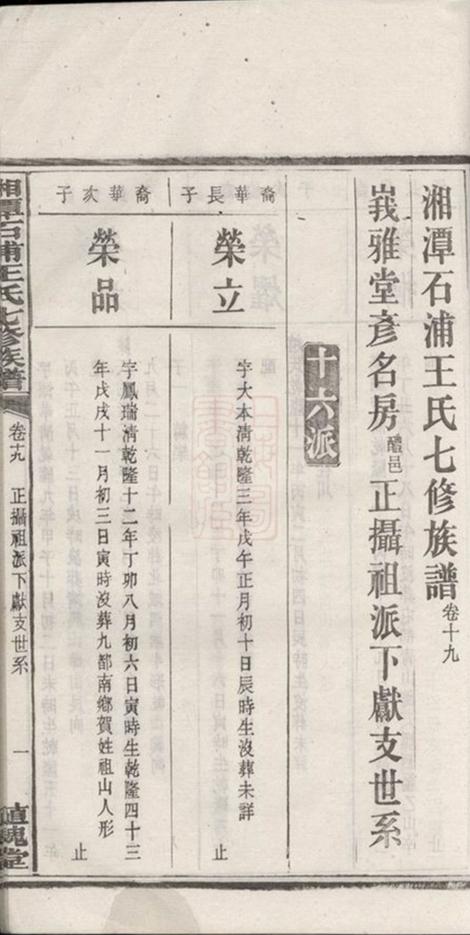 湘潭石浦王氏七修族譜 卷十九
峩雅堂彥名房醴邑正攝祖派下獻支世系
十六派
裔華長子
榮立
字大本清乾隆三年戊午正月初十日辰時生沒葬未詳
止
裔華次子
榮品
字鳳瑞清乾隆十二年丁卯八月初六日寅時生乾隆四十三
年戊戌十一月初三日寅時沒葬九都南鄉賀姓祖山人形
止
湘潭石浦王氏七修族譜
卷十九 正攝祖派下獻支世系
一
植槐堂